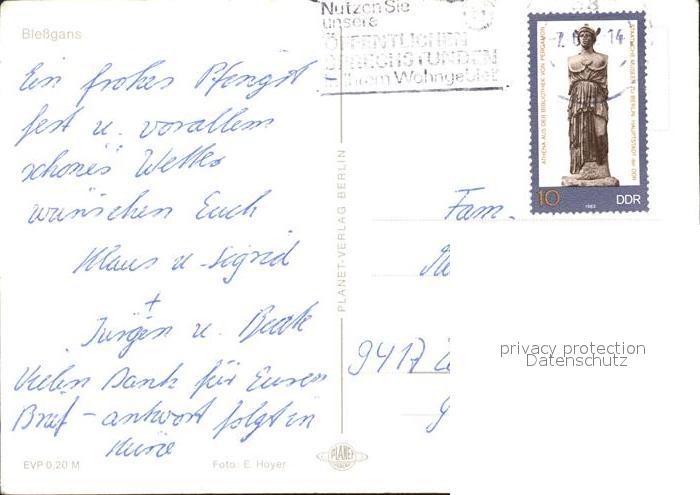 Bleßgans
Ein frohes Pfingst
fest u. vorallem
schönes Wetter
wünschen Euch
Klaus u. Sigrid
+
Jürgen u. Beate
Vielen Dank für Euren
Brief - antwort folgt in
Kürze
EVP 0,20 M
Foto: E. Hoyer
PLANET-VERLAG BERLIN
PLANET
Nutzen Sie
unsere
ÖFFENTLICHEN
SPRECHSTUNDEN
in Ihrem Wohngebiet
ATHENA AUS DER BIBLIOTHEK VON PERGAMON
STAATLICHE MUSEEN ZU BERLIN, HAUPTSTADT der DDR
10
1983
DDR
Fam.
9417
privacy protection
Datenschutz